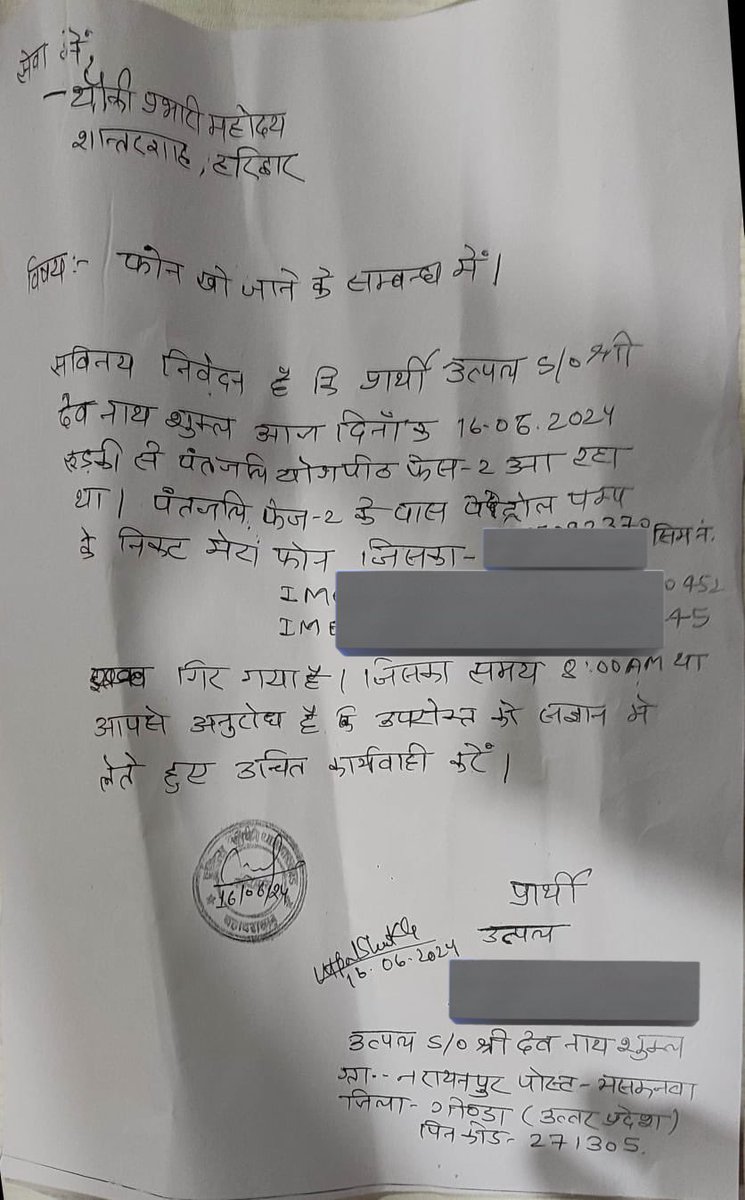 सेवा में,
चौकी प्रभारी महोदय
शान्तरशाह, हरिद्वार
विषय:- फोन खो जाने के सम्बन्ध में।
सविनय निवेदन है कि प्रार्थी उत्पल S/O श्री
देव नाथ शुक्ल आज दिनाँक 16.06.2024
रुड़की से पंतजलि योगपीठ फेस-2 आ रहा
था। पंतजलि फेज-2 के पास पेट्रोल पम्प
के निकट मेरा फोन जिसका- सिम नं.
0452
IME 45
गिर गया है। जिसका समय 8:00AM था
आपसे अनुरोध है कि उपरोक्त को संज्ञान मे
लेते हुए उचित कार्यवाही करें।
16/06/24
प्रार्थी
उत्पल
Utpal Shukla
16.06.2024
उत्पल S/O श्री देव नाथ शुक्ल
ग्रा०- नरायनपुर पोस्ट- मसकनवा
जिला- गोण्डा (उत्तर प्रदेश)
पिन कोड- 271305.